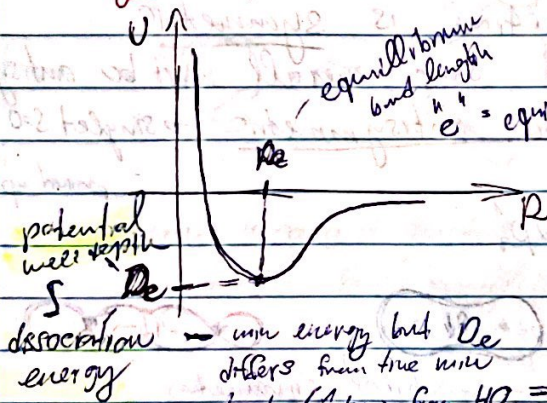 U
equillibrium
bond length
"e" = equi
Re
R
potential
well depth
De
dissociation — min energy but De
energy differs from true min